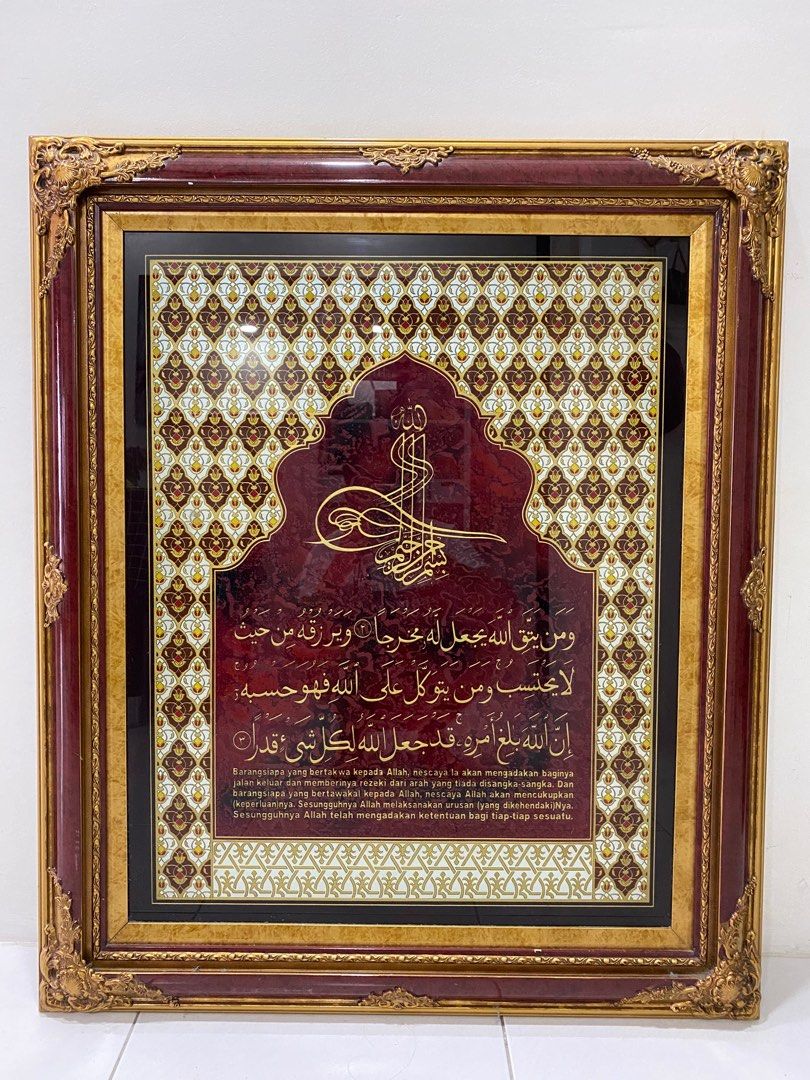 الله
بسم الله الرحمن الرحيم
وَمَن يَتَّقِ ٱللَّهَ يَجْعَل لَّهُۥ مَخْرَجًا ٢ وَيَرْزُقْهُ مِنْ حَيْثُ
لَا يَحْتَسِبُ ۚ وَمَن يَتَوَكَّلْ عَلَى ٱللَّهِ فَهُوَ حَسْبُهُۥٓ ۚ
إِنَّ ٱللَّهَ بَٰلِغُ أَمْرِهِۦ ۚ قَدْ جَعَلَ ٱللَّهُ لِكُلِّ شَىْءٍ قَدْرًا ٣
Barangsiapa yang bertakwa kepada Allah, nescaya Ia akan mengadakan baginya
jalan keluar dan memberinya rezeki dari arah yang tiada disangka-sangka. Dan
barangsiapa yang bertawakal kepada Allah, nescaya Allah akan mencukupkan
(keperluan)nya. Sesungguhnya Allah melaksanakan urusan (yang dikehendaki)Nya.
Sesungguhnya Allah telah mengadakan ketentuan bagi tiap-tiap sesuatu.